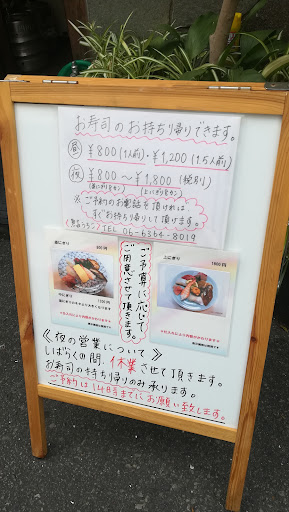 お寿司のお持ち帰りできます。
昼 ¥800(1人前)・¥1,200(1.5人前)
夜 ¥800〜¥1,800 (税別)
(並にぎり6カン) (上にぎり8カン)
※ ご予約のお電話を頂ければ
すぐお持ち帰りして頂けます。
TEL 06-6364-8019
並にぎり
800円
上にぎり
1800円
ご予算に応じて
ご用意させて頂きます。
《夜の営業について》
しばらくの間、休業させて頂きます。
お寿司の持ち帰りのみ承ります。
ご予約は14時までにお願い致します。